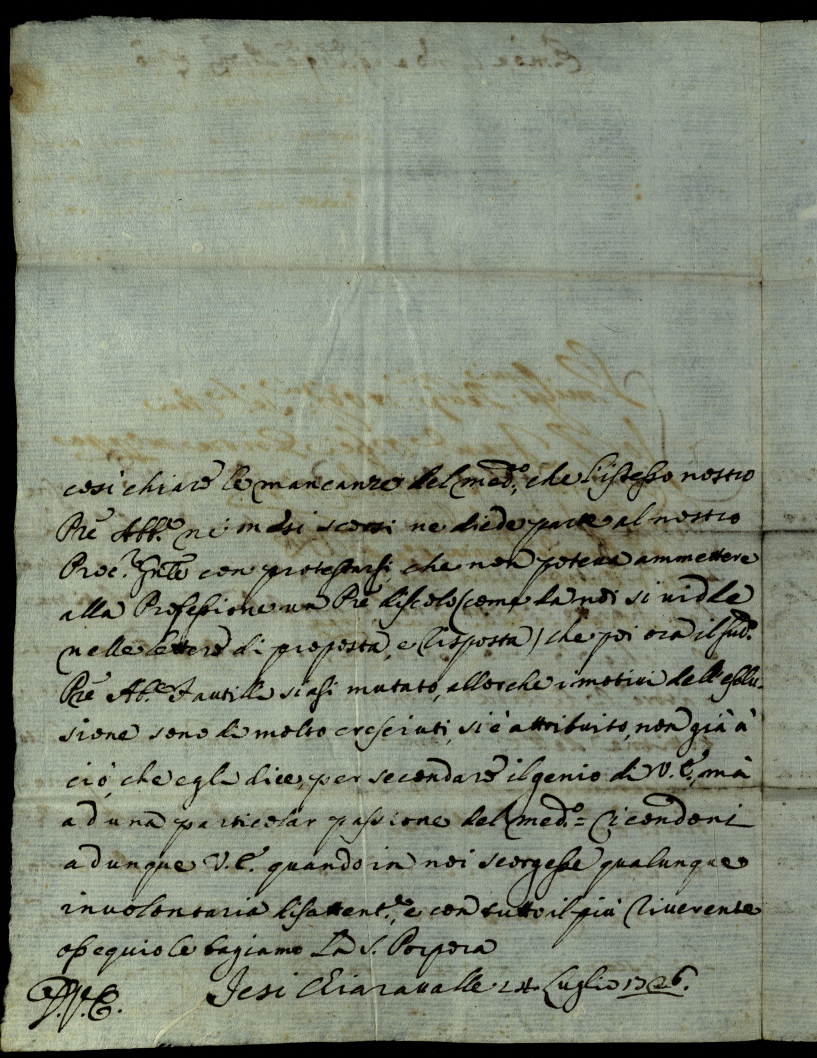 così chiare le mancanze del med.º, che l'istesso nostro
Pre Abb.e ne i mesi scorsi ne diede parte al nostro
Proc.r Gnle con protestarsi, che non poteva ammettere
alla Professione un Pre discolo (come da noi si vidde
nelle lettere di proposta, e risposta) che poi ora il sud.º
Pre Ab.e Fautilli siasi mutato, allorche i motivi dell'esclu-
sione sono di molto cresciuti, si è attribuito, non già à
ciò, che egli dice, per secondare il genio di V.E., mà
ad una particolar passione del med.º = Ci condoni
adunque V.E. quando in noi scorgesse qualunque
involontaria disattent.e, e con tutto il più riverente
ossequio le bagiamo La S. Porpora
Jesi Chiaravalle 24 Luglio 1726.